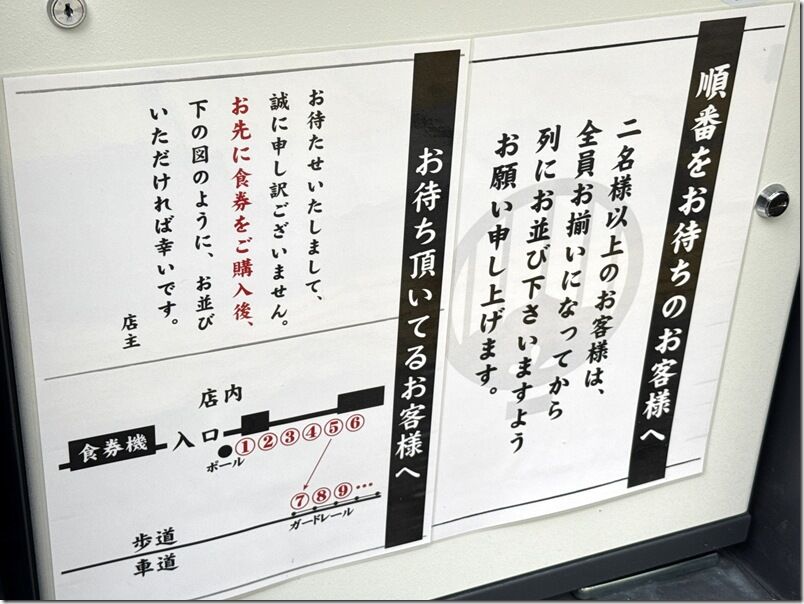 順番をお待ちのお客様へ
二名様以上のお客様は、
全員お揃いになってから
列にお並び下さいますよう
お願い申し上げます。
お待ち頂いてるお客様へ
お待たせいたしまして、
誠に申し訳ございません。
お先に食券をご購入後、
下の図のように、お並び
いただければ幸いです。
店主
店内
食券機
入口
ポール
①②③④⑤⑥
⑦⑧⑨…
ガードレール
歩道
車道